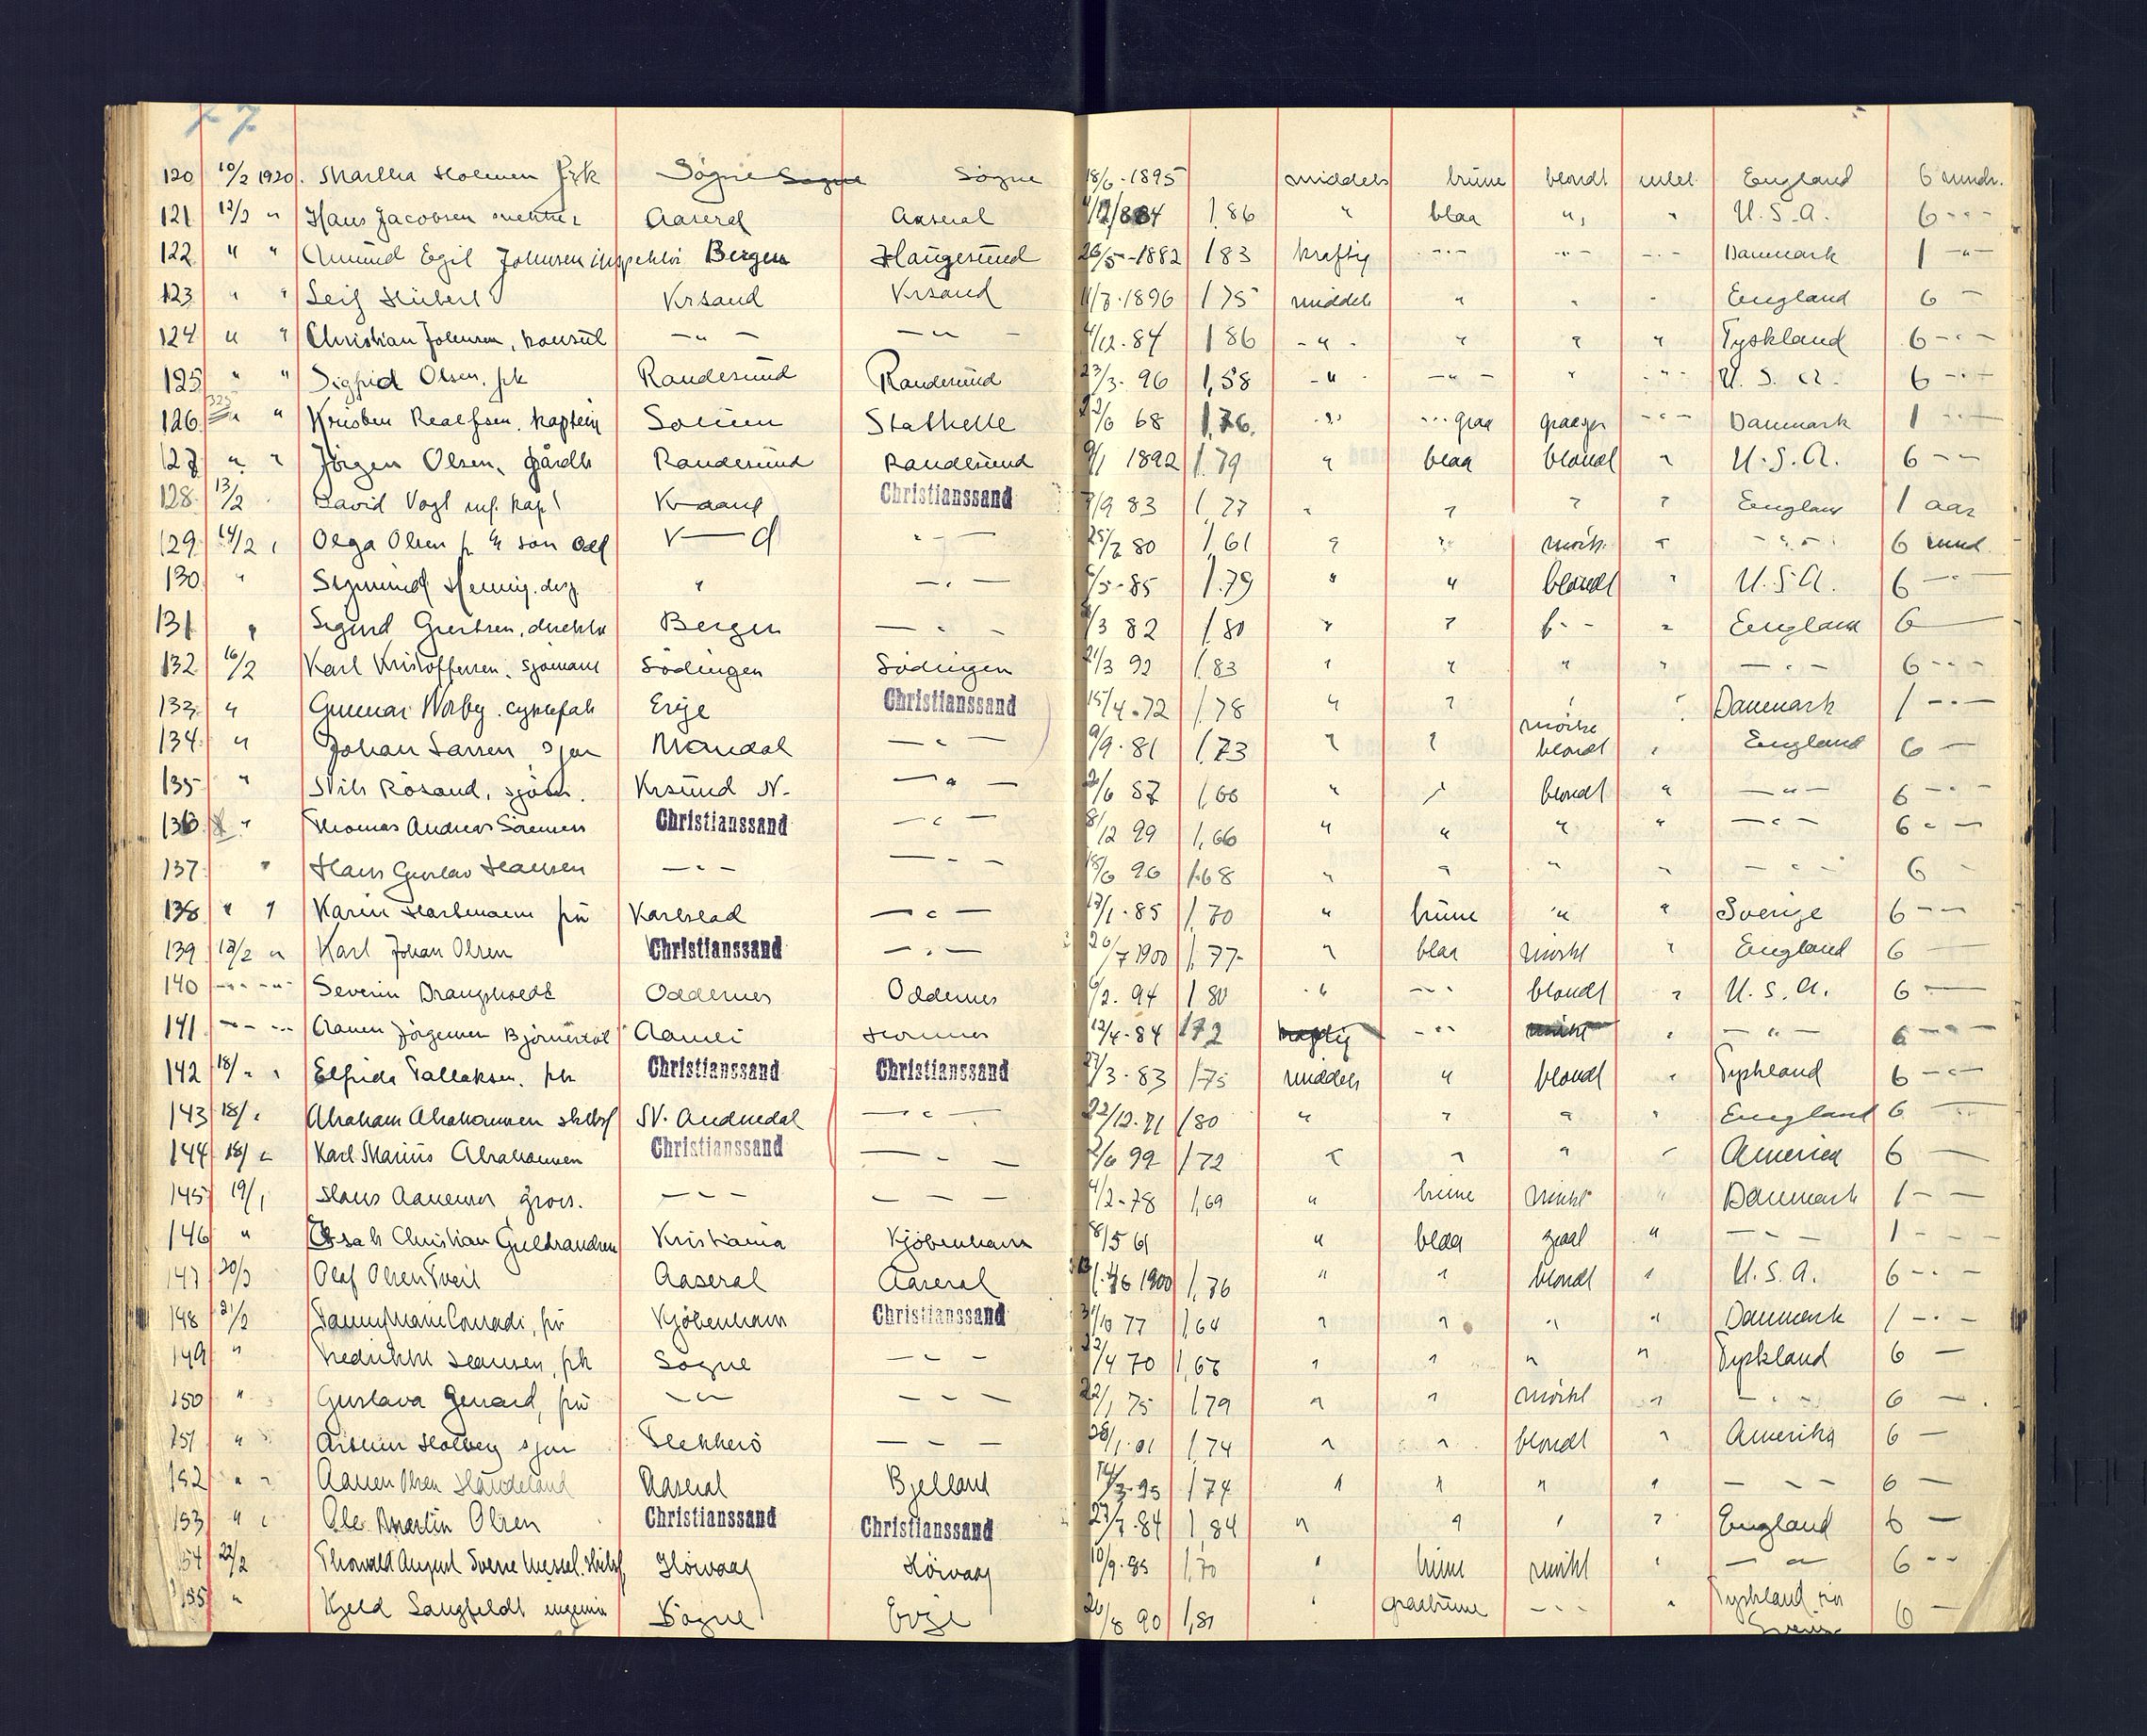 77
120 10/2 1920. Martha Holmen frk Søgne Søgne 18/6-1895 middels brune blondt intet England 6 mndr.
121 12/2 " Hans Jacobsen Aaseral Aaseral 1.86 " blaa " " U.S.A. 6 - - -
122 " " Amund Egil Johnsen inspektør Bergen Haugesund 26/5-1882 183 kraftig - - - - - - - - - Danmark 1 - " -
123 " " Leif Krsand Krsand 1896 175 middels " " - England 6 -
124 " " Christian Johnsen, konsul - " - - " - 4/12-84 186 - " - " " " Tyskland 6 - - -
125 " " Sigfrid Olsen, frk Randesund Randesund 23/3-96 1,58 - " - - " - " - " - U.S.A. 6 - - -
126 325 " " Kristen Realfsen, kaptein Solum Stathelle 22/6 68 1,76 " graa - " - Danmark 1 - - -
127 " " Jörgen Olsen, gårdb Randesund Randesund 9/1 1892 1.79 " blaa blondt " U.S.A. 6 - -
128 13/2 David Vogt inf. kapt Krsand Christianssand 7/9 83 1,77 " " " " England 1 aar
129 14/2 Olga Olsen fr & søn Odd K—d " - - 80 1,61 " " mörk " - " - 6 mnd.
130 " Sigmund Hennig. disp. " - " - 6/5-85 1.79 " " blondt " U.S.A. 6 - -
131 " Sigurd direktør Bergen - " - 82 1.80 " " b - - " England 6 -
132 16/2 Karl Kristoffersen, sjömann Södingen Södingen 21/3 92 1.83 " " " " - " - 6 - - -
133 " Gunnar Norby. cyklefab Evje Christianssand 15/4-72 1.78 " " " " Danmark 1 - - -
134 " Johan Larsen, sjöm Mandal - " - 9/9-81 1.73 " " mörke blondt " England 6 -
135 " Nils Rösand, sjöm. Krsund N. - " - 87 1,66 " " blondt " - " - 6 - - -
136 " Thomas Andreas Sörensen Christianssand - " - 8/12 99 1,66 " " " " - " - 6 - -
137 " Hans Gustav Hansen - " - - " - 18/6 96 1.68 " " " " - " - 6 -
138 " " Karin Hartmann frü Karlstad - " - 85 1,70 " brune " " Sverige 6 - -
139 " Karl Johan Olsen Christianssand - " - 1900 1.77 " blaa mörkt " England 6 -
140 - - - - Severin Drangsholdt Oddernes Oddernes 6/2-94 180 " - - - blondt " U.S.A. 6 -
141 - - - - Aanen Jörgensen Aamli 12/4-84 172 kraftig - - - mörkt " - " - 6 - - -
142 18/ " " Elfrida Tallaksen, frk Christianssand Christianssand 27/3-83 175 middels " blondt " Tyskland 6 - - -
143 18/ " Abraham Abrahamsen N. Audnedal - " - 22/12-71 180 " " " " England 6 -
144 18/ " Karl Marius Abrahamsen Christianssand - " - 2/6 99 172 " " " " America 6 -
145 19/ Hans Aanensen, gross. - " - - - - 4/2-78 1,69 " brune mörkt " Danmark 1 - -
146 " Isak Christian Guldbrandsen Kristiania Kjöbenhavn 8/5 61 " blaa graat " - - - 1 - - -
147 20/2 Olaf Olsen Tveit Aaseral Aaseral 1900 1,76 " " blondt " U.S.A. 6 - - -
148 21/2 Fanny Marie Conradi, frü Kjöbenhavn Christianssand 31/10 77 1,64 " " " " Danmark 1 - - -
149 " Fredrikke Hansen, frk Søgne - " - 22/4 70 1,68 " " " " Tyskland 6 -
150 " Gustava Gerrard, frü - " - - - - 22/1 75 1.79 " " mörkt " - " - 6 -
151 " Arthur Holberg sjöm Flekkerö - - - 28/1-01 1,74 " " blondt " Amerika 6 -
152 " " Aanen Olsen Haudeland Aaseral Bjelland 14/3-95 174 " " " " - - - 6 -
153 " " Ole Martin Olsen Christianssand Christianssand 27/7-84 1,84 " " " " England 6 -
154 22/2 Thorvald August Sverre Wessel. Hövaag Hövaag 10/9-85 1,70 " brune mörkt " - " - 6 - -
155 " Kjeld Langfeldt ingeniør Søgne Evje 26/8 90 1,81 " graabrune - - - " Tyskland 6 -